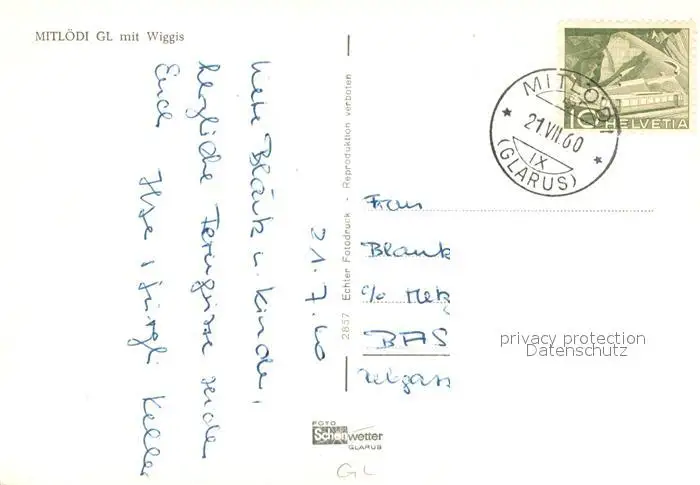 MITLÖDI GL mit Wiggis
HELVETIA
10
MITLÖDI
21.VII.60
IX
(GLARUS)
21.7.60
Liebe Blänk u. Kinder,
herzliche Feriengrüsse senden
Euch Ilse, Keller
2857 Echter Fotodruck - Reproduktion verboten
Frau
Blank
c/o Metz
BAS
privacy protection
Datenschutz
FOTO
Schönwetter
GLARUS
GL